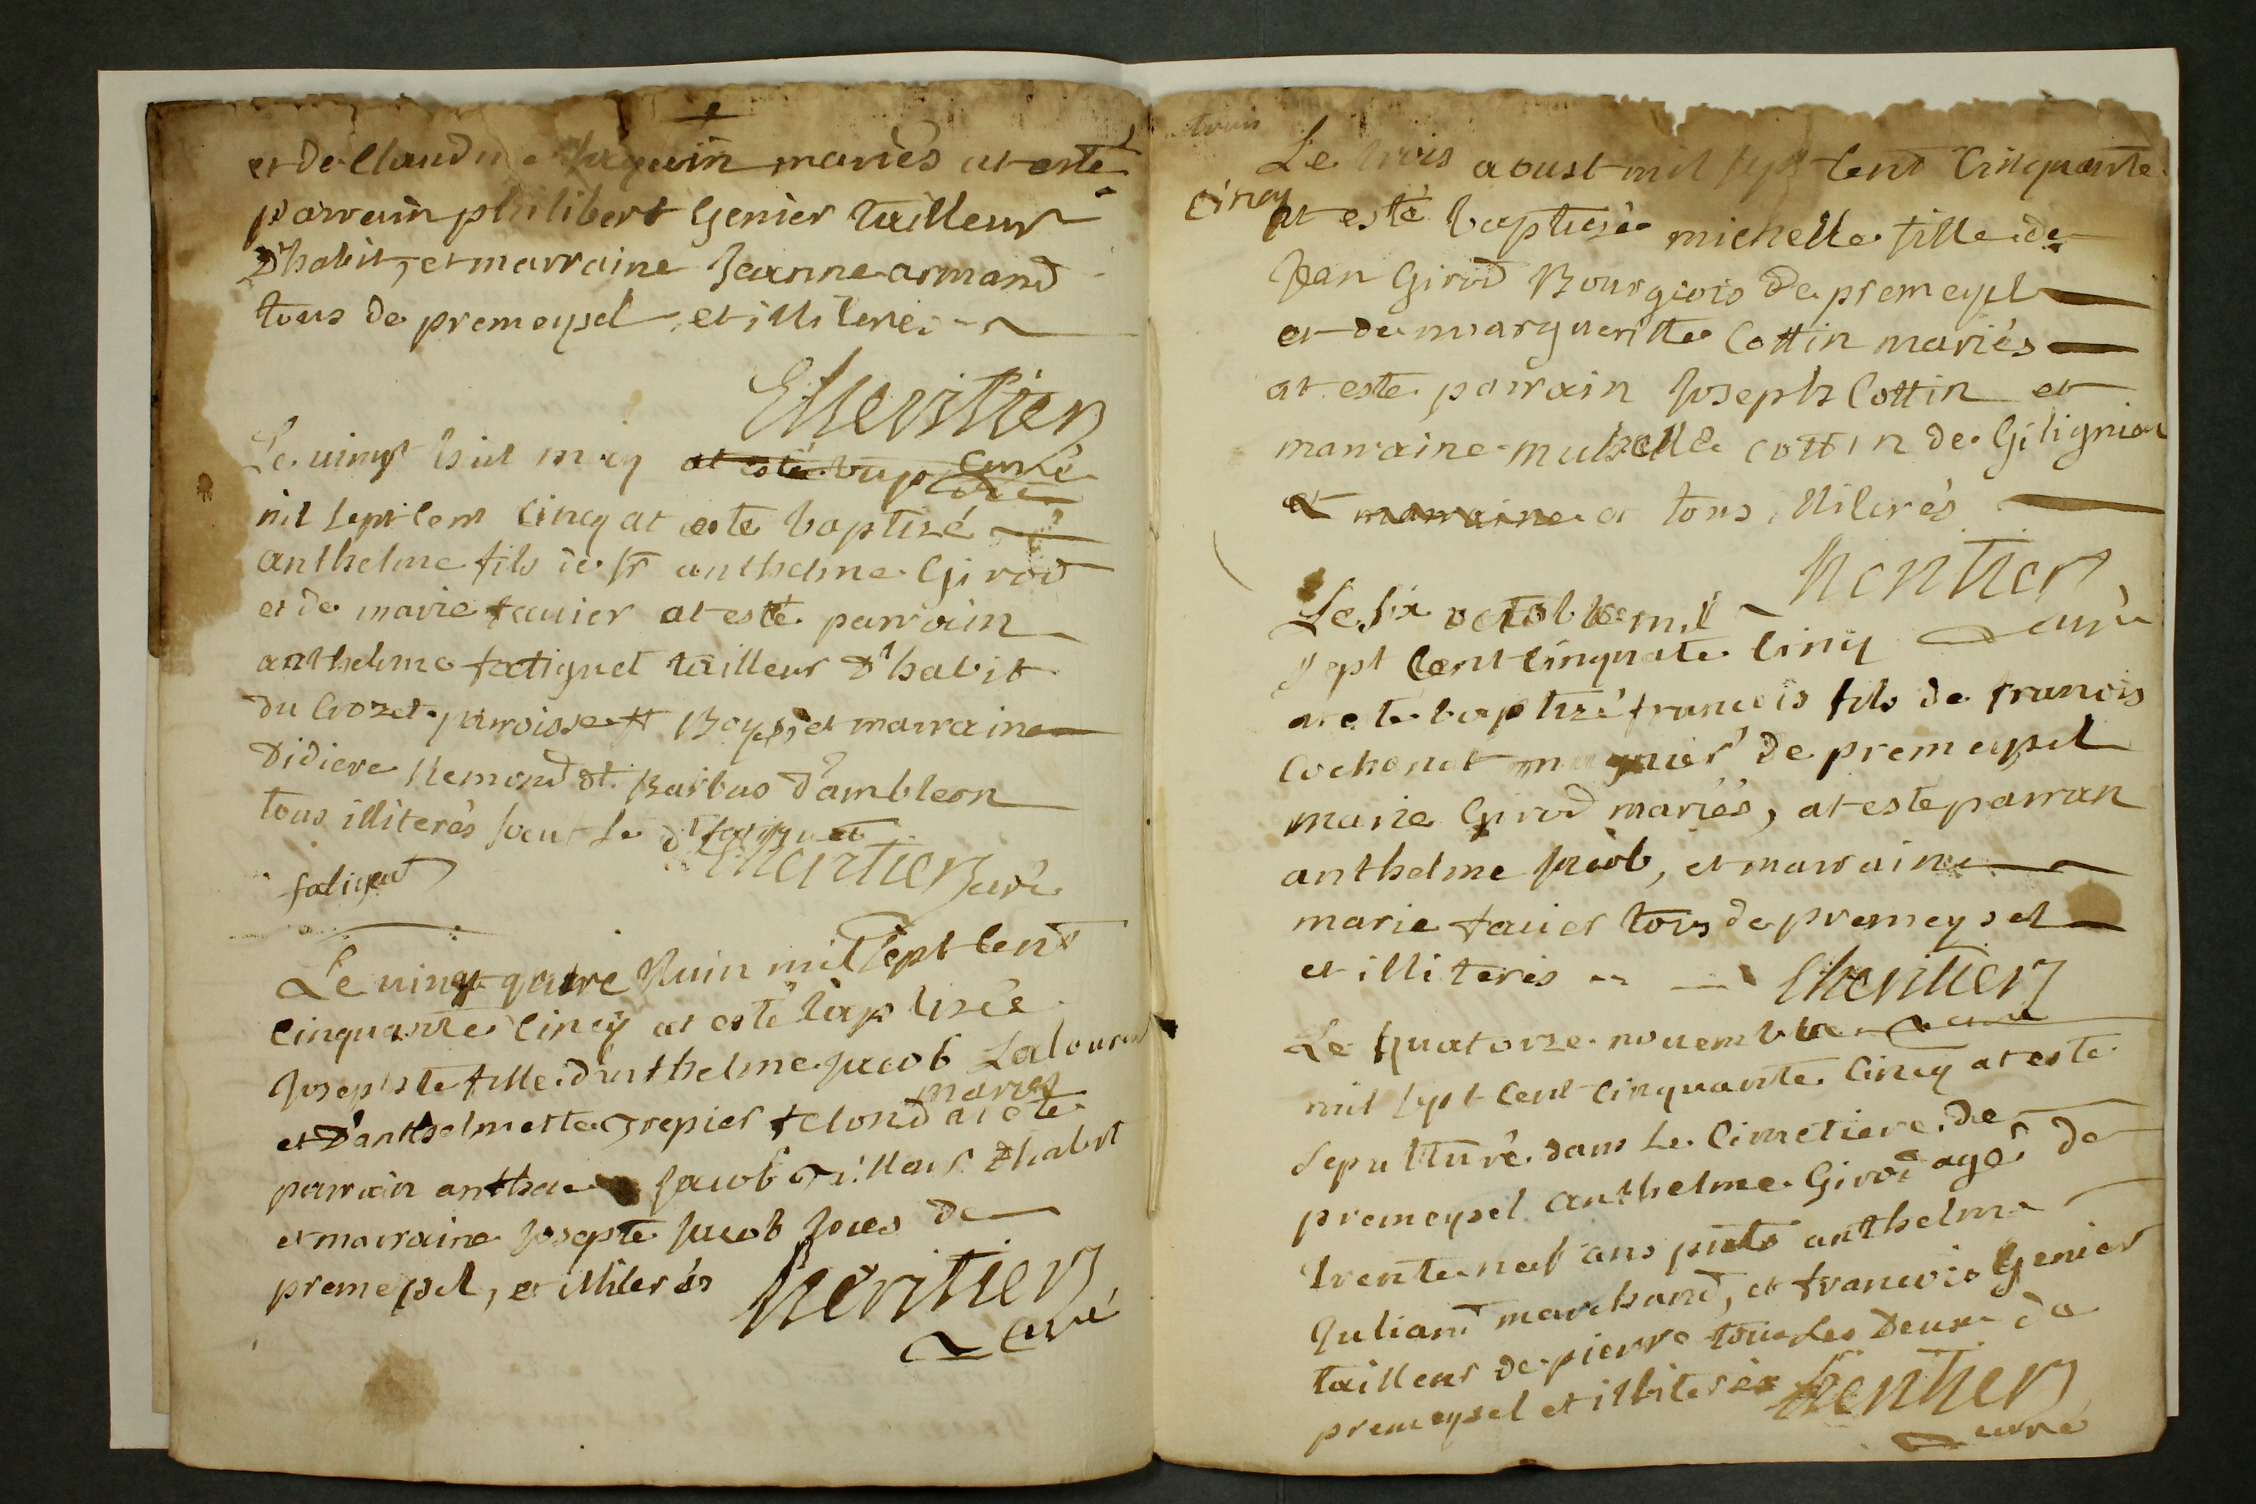 et de Claudine Jaquin mariés at esté
parrain philibert Genier tailleur
D'habit, et marraine Jeanne armand
tous de premeysel et illiterés
Lheritier
curé
Le uingt huit may at esté bap
mil sept cent cinq at esté baptizé
anthelme fils de sr anthelme Girod
et de marie fauier at esté parrain
anthelme fatiguet tailleur d'habit
du Crozet paroisse et marraine
Didiere Remond dt Barbas d'ambleon
tous illiterés sauf le dt fatiguet
fatiguet
Lheritier curé
Le uingt quatre Juin mil sept cent
cinquante cinq at esté baptizée
Josephte fille d'anthelme Jacob Laboureur
mariés
et D'anthelmette Grepier at esté
parrain Jacob tailleur d'habit
et marraine Josepte Jacob tous de
premeysel, et illiterés
Lheritier
curé
trois
Le trois aoust mil sept cent cinquante
cinq
at esté baptisée michelle fille de
Jean Girod Bourgeois de premeysel
et de margueritte Cottin mariés
at esté parrain Joseph Cottin et
marraine michelle cottin de Gilignieu
et marraine et tous illiterés
Lheritier
curé
Le six octobre mil
sept cent cinquate cinq
at esté baptizé francois fils de francois
Cochonet de premeysel
marie Girod mariés, at esté parran
anthelme Jacob, et marraine
marie fauier tous de premeysel
et illiterés
Lheritier
curé
Le quatorze nouembre
mil sept cent cinquante cinq at esté
sepulturé dans Le Cimetiere de
premeysel anthelme Girod agé de
trente neuf ans pnts anthelme
Juliand marchand, et francois Genier
tailleur de pierre tous Les Deux de
premeysel et illiterés
Lheritier
curé